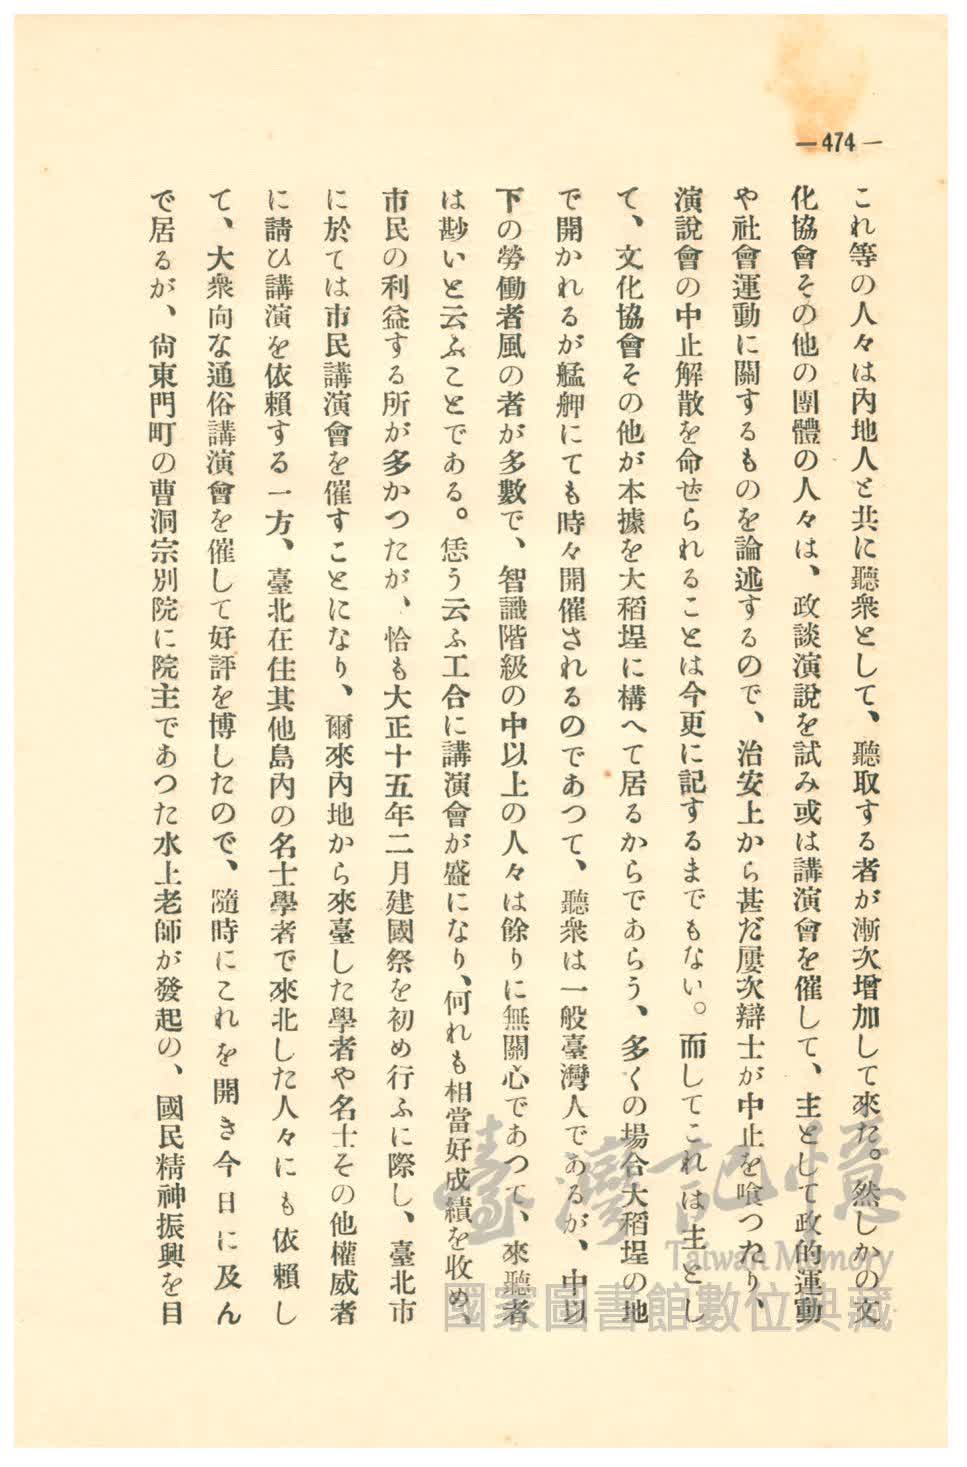 —474—
これ等の人々は內地人と共に聽衆として、聽取する者が漸次增加して來た。然しかの文
化協會その他の團體の人々は、政談演說を試み或は講演會を催して、主として政的運動
や社會運動に關するものを論述するので、治安上から甚だ屢次辯士が中止を喰つたり、
演說會の中止解散を命ぜられることは今更に記するまでもない。而してこれは主とし
て、文化協會その他が本據を大稻埕に構へて居るからであらう、多くの場合大稻埕の地
で開かれるが艋舺にても時々開催されるのであつて、聽衆は一般臺灣人であるが、中以
下の勞働者風の者が多數で、智識階級の中以上の人々は餘りに無關心であつて、來聽者
は尠いと云ふことである。恁う云ふ工合に講演會が盛になり、何れも相當好成績を收め、
市民の利益する所が多かつたが、恰も大正十五年二月建國祭を初め行ふに際し、臺北市
に於ては市民講演會を催すことになり、爾來內地から來臺した學者や名士その他權威者
に請ひ講演を依賴する一方、臺北在住其他島內の名士學者で來北した人々にも依賴し
て、大衆向な通俗講演會を催して好評を博したので、隨時にこれを開き今日に及ん
で居るが、尙東門町の曹洞宗別院に院主であつた水上老師が發起の、國民精神振興を目
臺灣記憶
Taiwan Memory
國家圖書館數位典藏